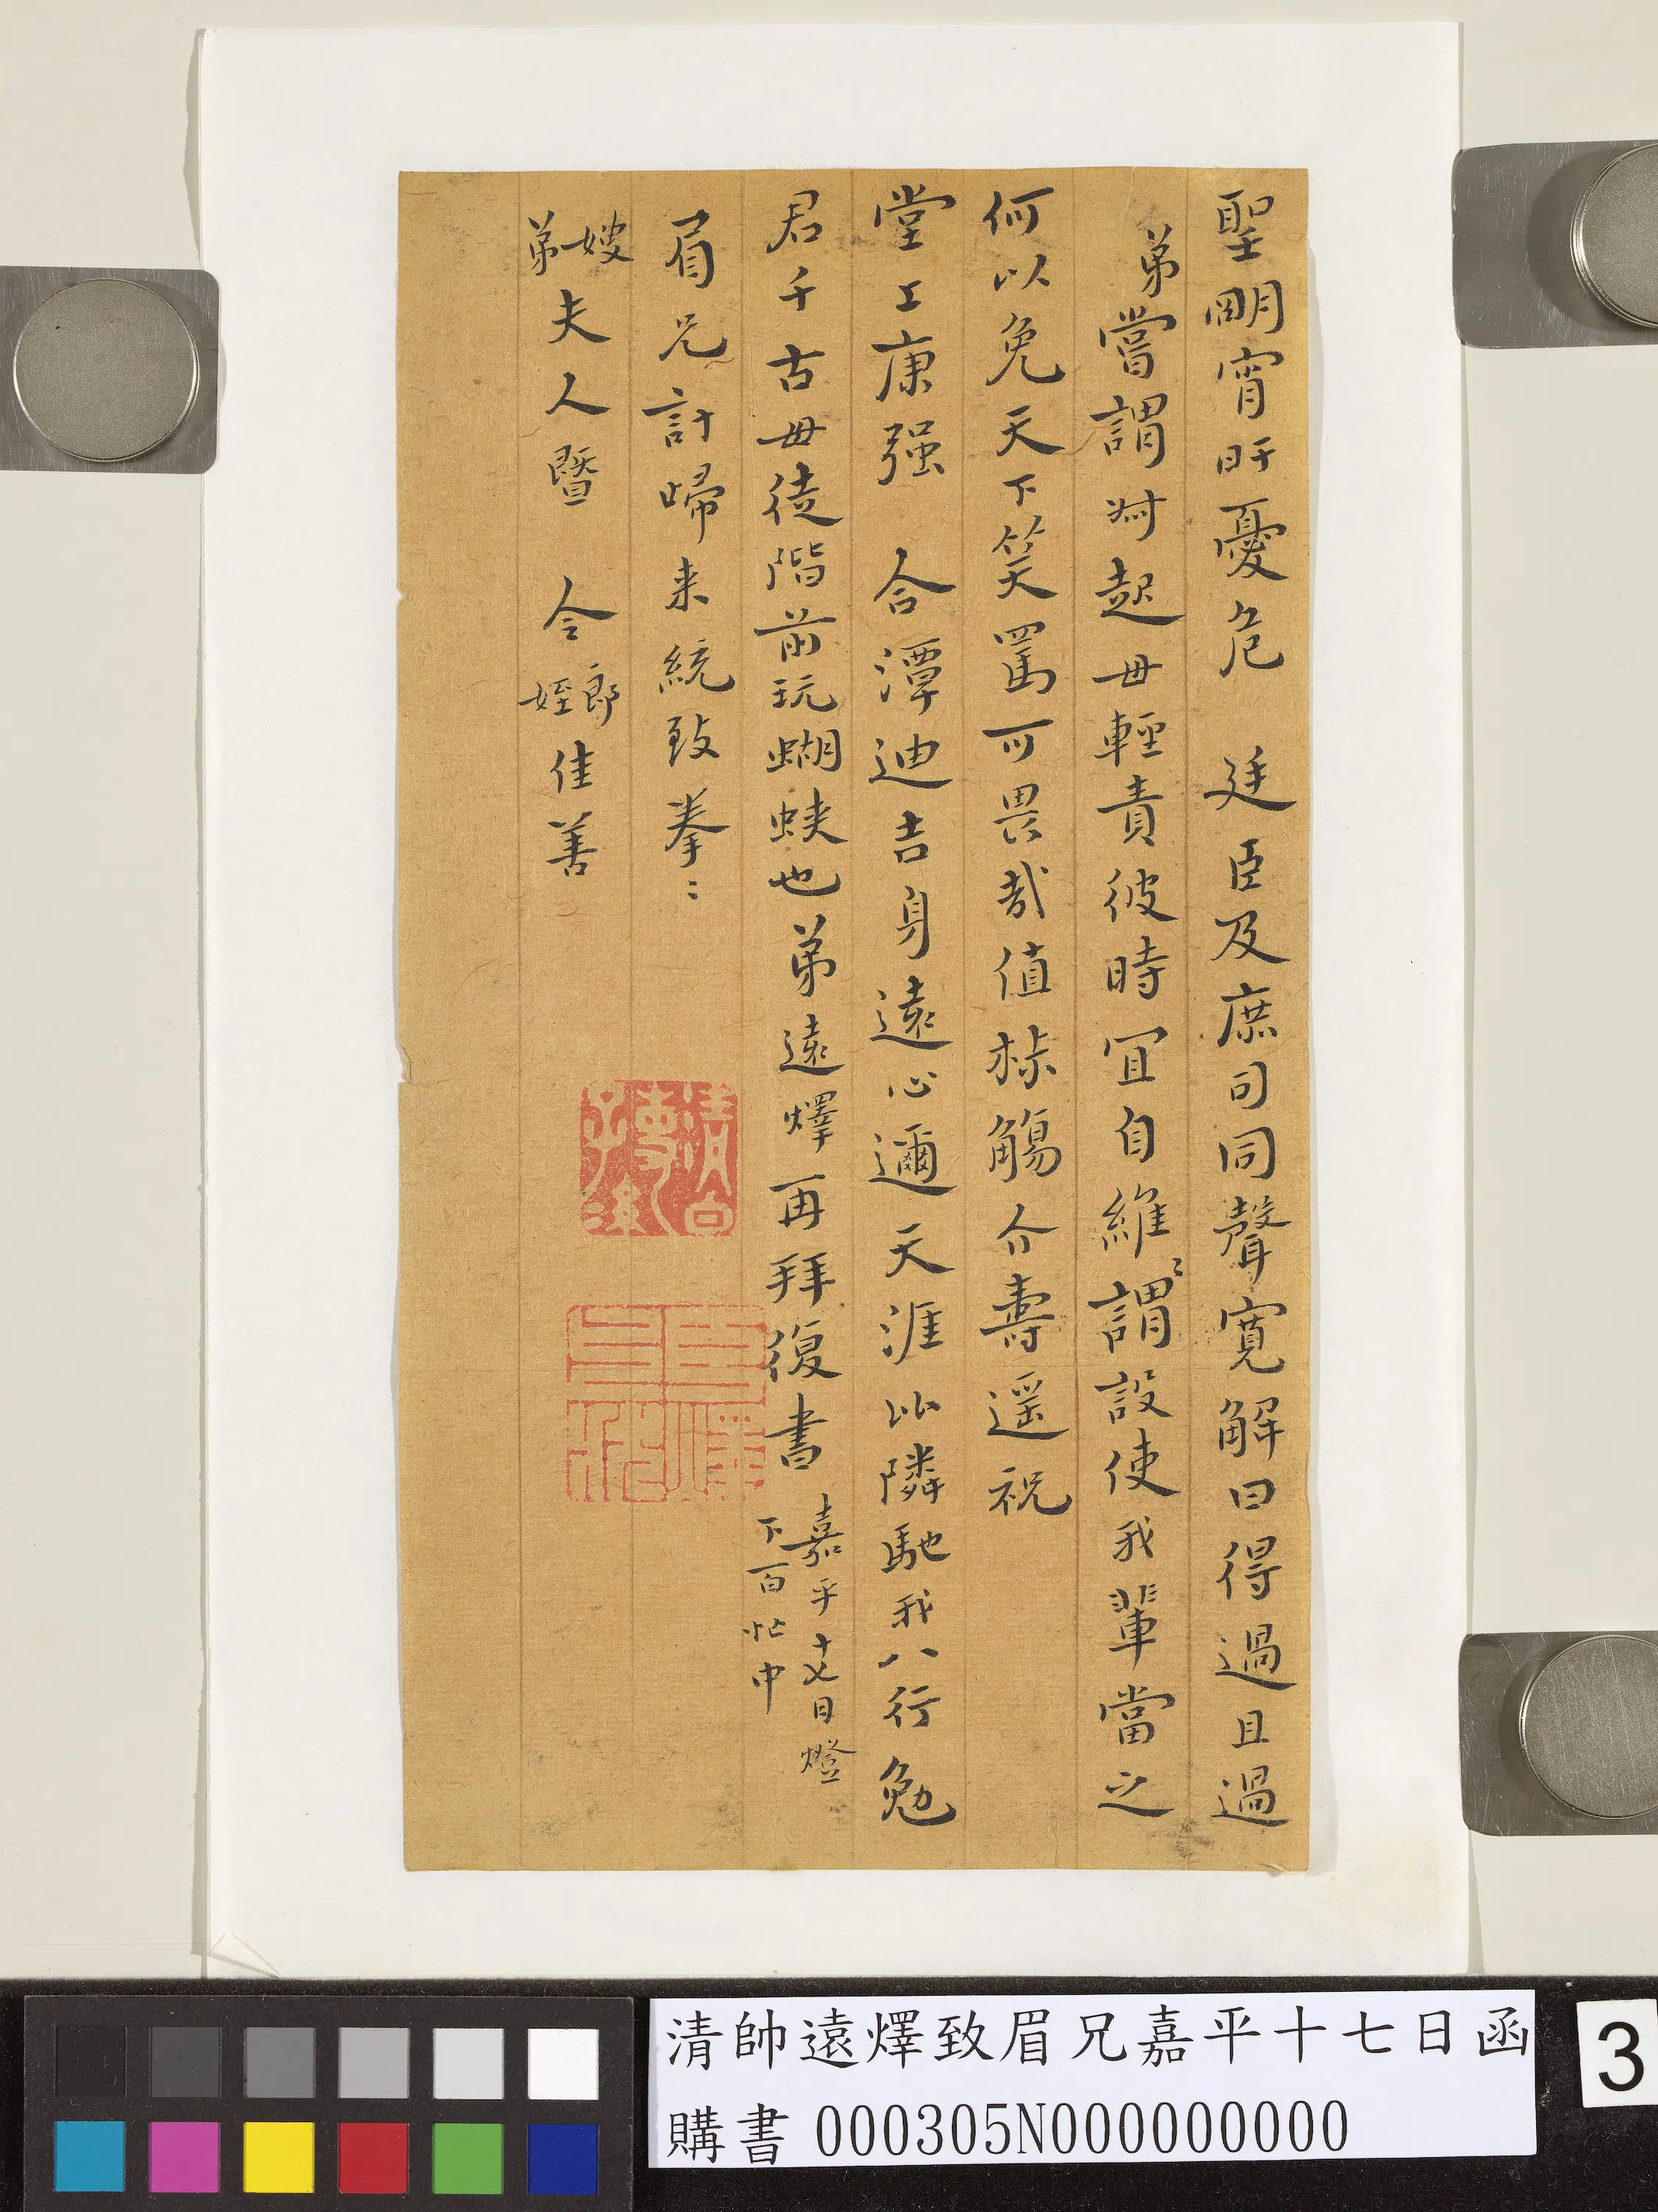 聖明宵旰憂危　廷臣及庶司同聲寬解曰得過且過
弟嘗謂對起毋輕責彼時宜自維〻謂設使我輩當之
何以免天下笑罵可畏哉值椒觴介壽遥祝
堂上康强　合潭迪吉身遠心邇天涯比隣馳我八行勉
君千古毋徒階前玩蝴蛱也弟遠燡再拜復書嘉平十七日燈
下百忙中
眉兄計歸来統致拳〻
嫂弟夫人暨　令郎姪佳善
清帥遠燡致眉兄嘉平十七日函
購書 000305N000000000
3